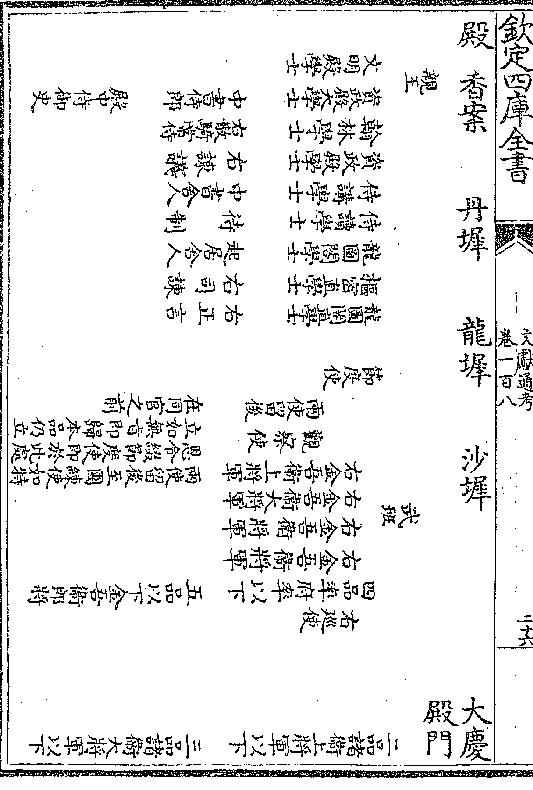 欽定四庫全書
文獻通考
卷一百八
二十六
殿 香案 丹墀 龍墀 沙墀
大慶殿門
親王
文明殿學士
資政殿大學士
翰林學士
資政殿學士
侍講學士
侍讀學士
龍圖閣學士
樞密直學士
龍圖閣直學士
中書侍郎
右散騎常侍
右諫議
中書舍人
待制
起居舍人
右司諫
右正言
殿中侍御史
武班
節度使
兩使留後
觀察使
右金吾衛上將軍
右金吾衛大將軍
右金吾衛將軍
右金吾衛將軍
四品率府率以下
右巡使
二品諸衛上將軍以下
兩使留後至團練使如特
恩令綴觀察即於此處
立如無言即歸本品仍立
在同官之前
五品以下金吾衛郎將
三品諸衛大將軍以下